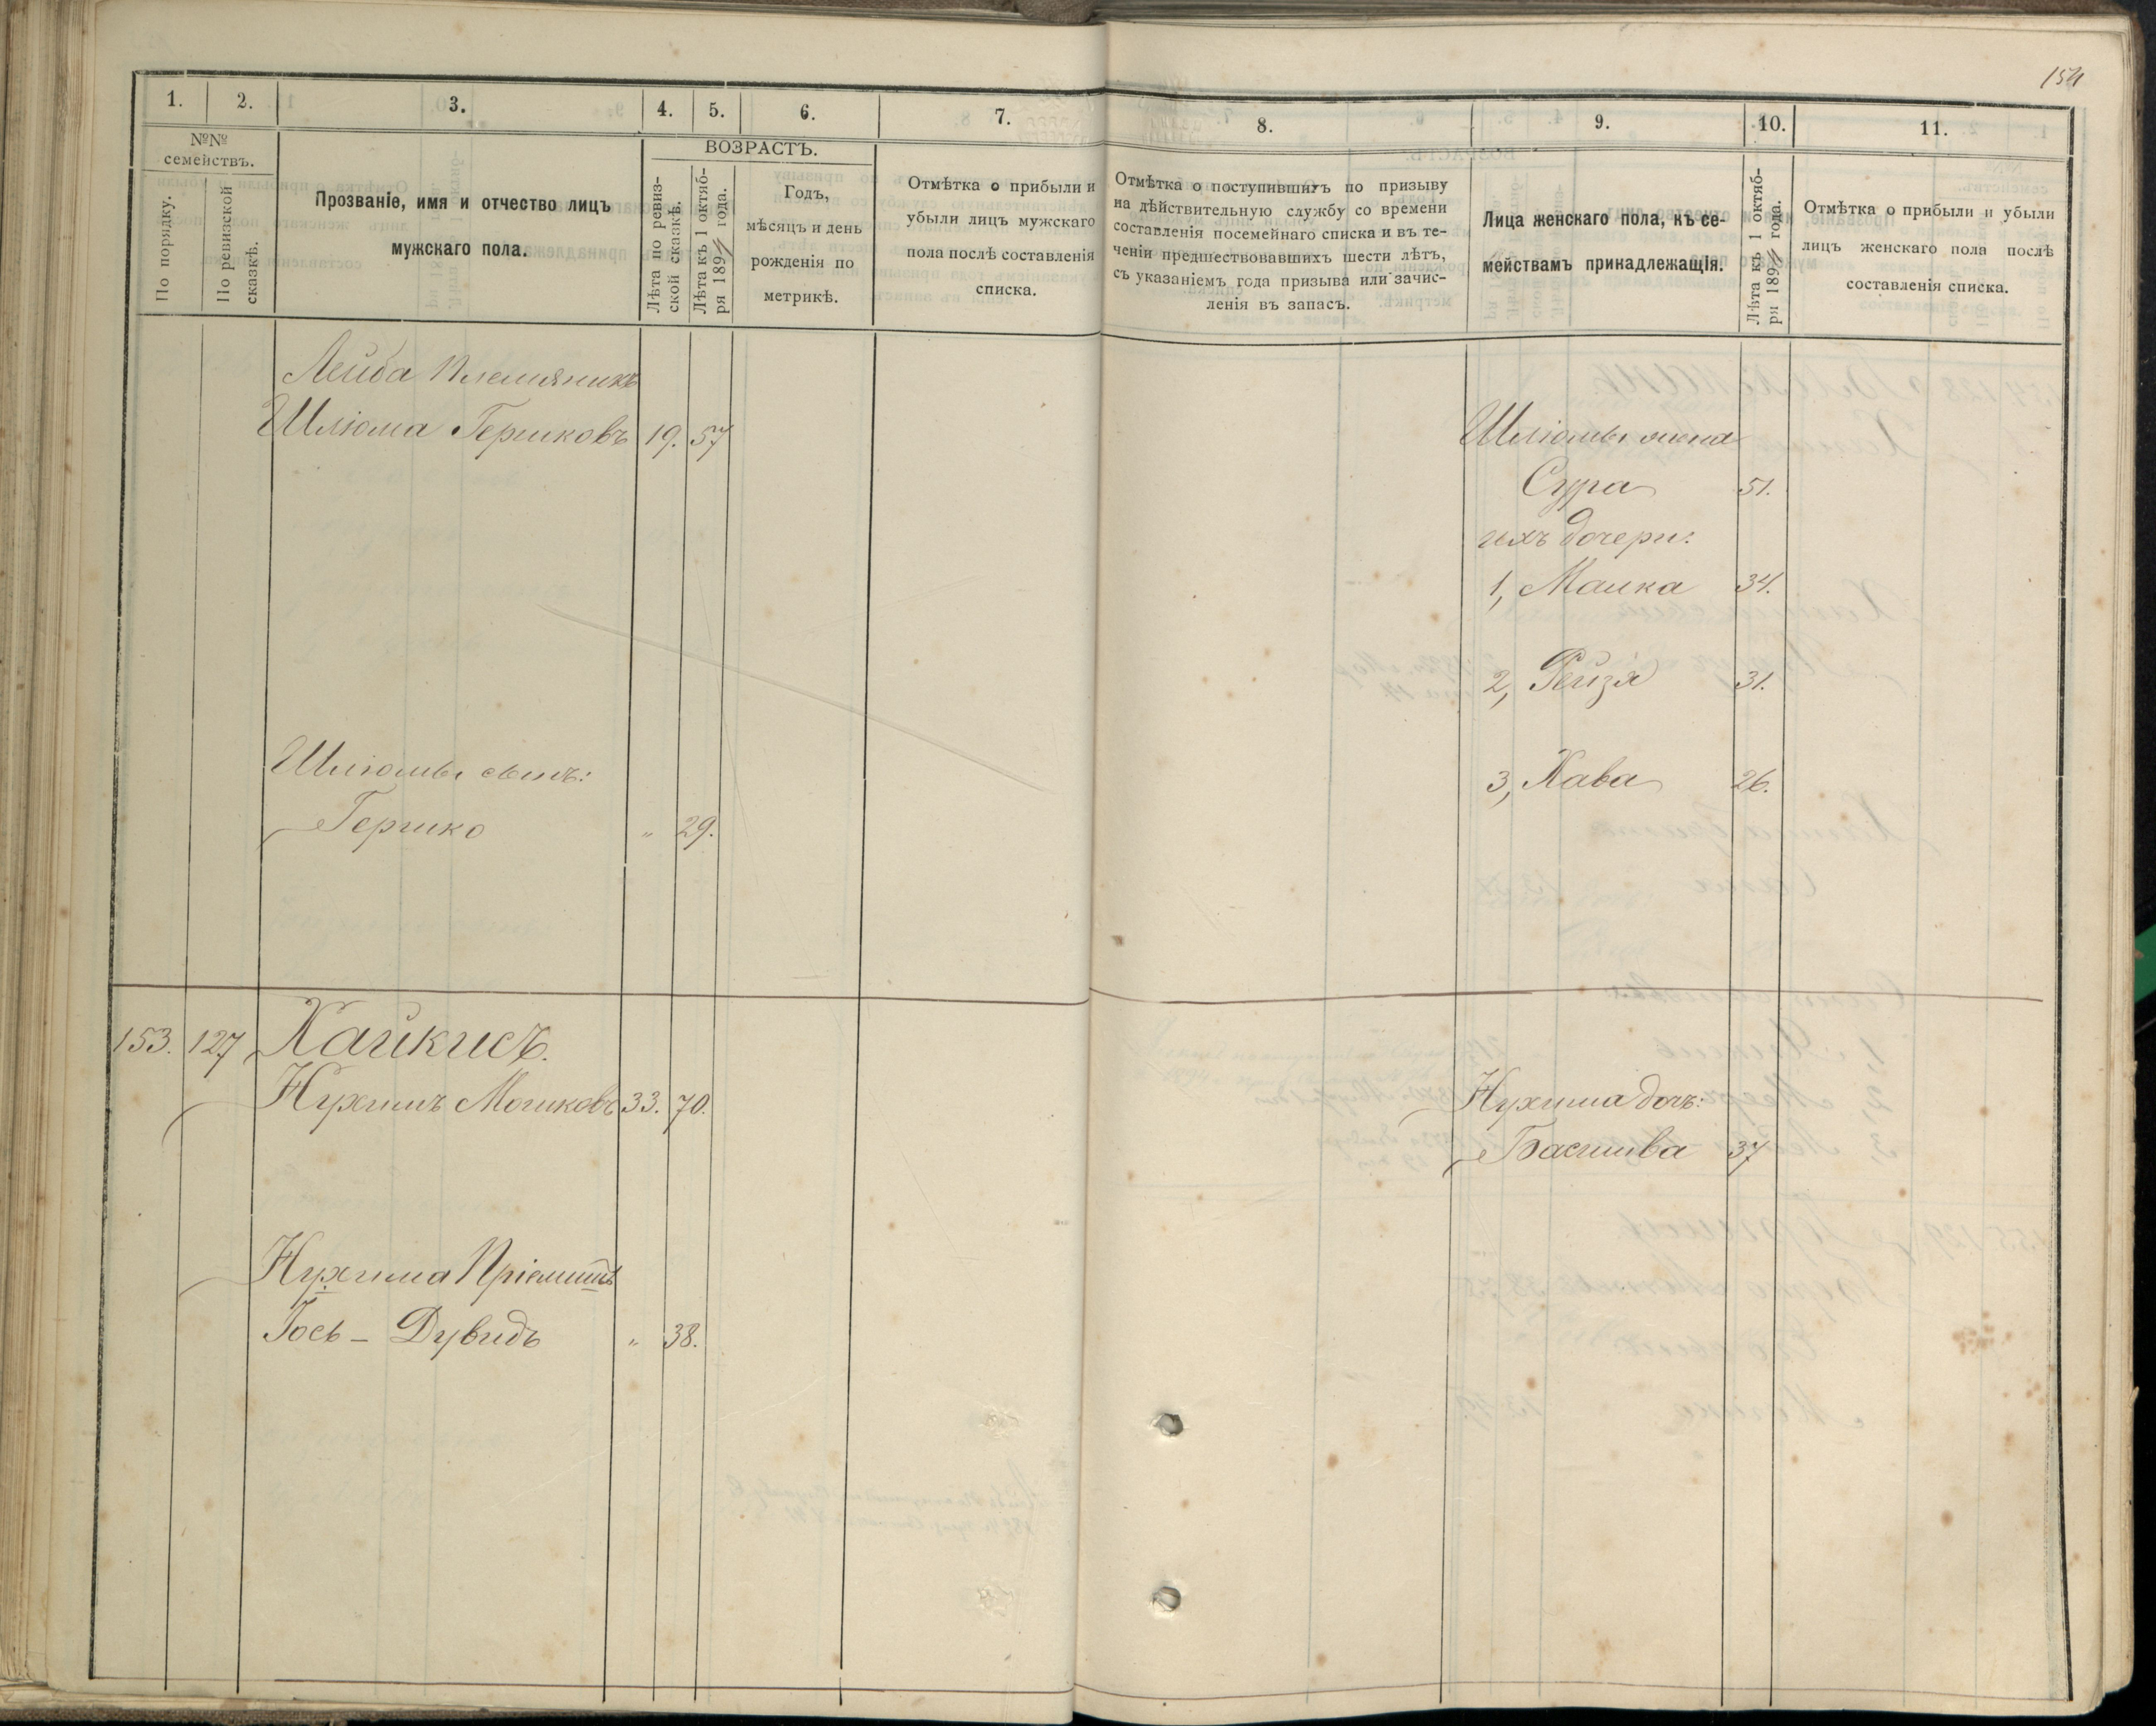 154
1.
2.
3.
4.
5.
6.
7.
8.
9.
10.
11.
№№
семействъ.
По порядку.
По ревизской
сказкѣ.
Прозваніе, имя и отчество лицъ
мужскаго пола.
ВОЗРАСТЪ.
Лѣта по ревиз-
ской сказкѣ.
Лѣта къ 1 октяб-
ря 189 года.
Годъ,
мѣсяцъ и день
рожденія по
метрикѣ.
Отмѣтка о прибыли и
убыли лицъ мужскаго
пола послѣ составленія
списка.
Отмѣтка о поступившихъ по призыву
на дѣйствительную службу со времени
составленія посемейнаго списка и въ те-
ченіи предшествовавшихъ шести лѣтъ,
съ указаніемъ года призыва или зачис-
ленія въ запасъ.
Лица женскаго пола, къ се-
мействамъ принадлежащія.
Лѣта къ 1 октяб-
ря 189 года.
Отмѣтка о прибыли и убыли
лицъ женскаго пола послѣ
составленія списка.
Лейба Племяникъ
Шліома Гершковъ 19. 57
Шліомы сынъ:
Гершко „ 29.
Шліомы жена
Сура 51.
ихъ дочери:
1, Малка 34.
2, Рейзя 31.
3, Хава 26.
153. 127 Хайкисъ.
Нухимъ Мошковъ 33. 70.
Нухима Пріемышъ
Іось - Дувидъ „ 38.
Нухима дочь:
Басшива 37